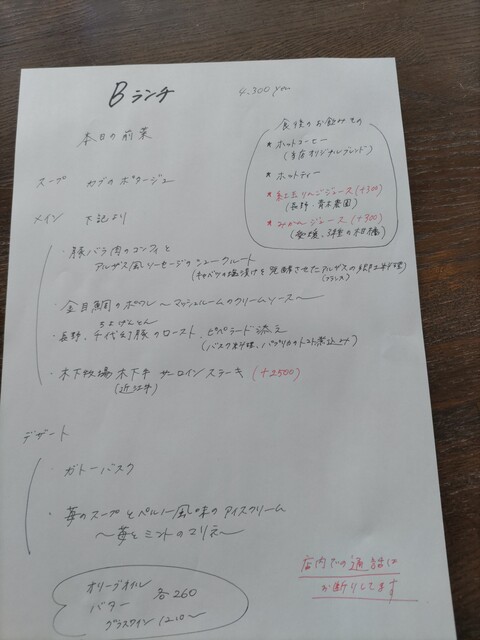 Bランチ
4.300yen
本日の前菜
スープ カブのポタージュ
メイン 下記より
食後のお飲みもの
* ホットコーヒー
(当店オリジナルブレンド)
* ホットティー
* 紅玉りんごジュース (+300)
(長野・青木農園)
* みかんジュース (+300)
(愛媛、の柑橘)
・豚バラ肉のコンフィと
アルザス風ソーセージのシュークルート
(キャベツの塩漬けを発酵させたアルザスの郷土料理)
(フランス)
・金目鯛のポワレ 〜マッシュルームのクリームソース〜
ちよげんとん
・長野、千代幻豚のロースト、ピペラード添え
(バスク料理、パプリカのトマト煮込み)
・木下牧場 木下牛 サーロインステーキ (+2500)
(近江牛)
デザート
・ガトーバスク
・苺のスープとペルノー風味のアイスクリーム
〜苺とミントのマリネ〜
オリーブオイル
バター 各260
グラスワイン 1210〜
店内での通話は
お断りしてます